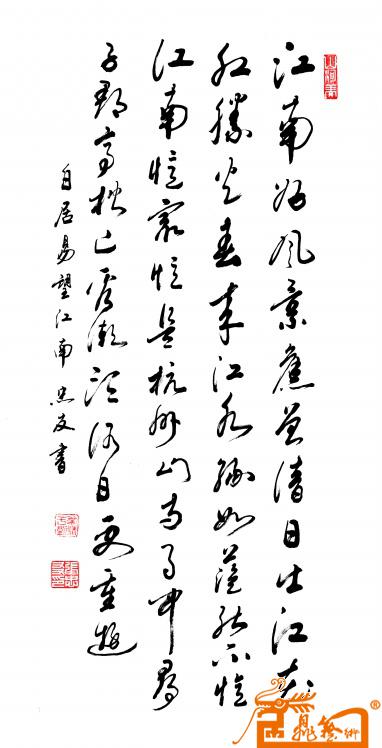 江南好风景舊曾諳日出江花
红勝火春来江水绿如蓝能不憶
江南憶最憶是杭州山寺月中尋
子郡亭枕上看潮頭何日更重遊
白居易望江南 忠友書